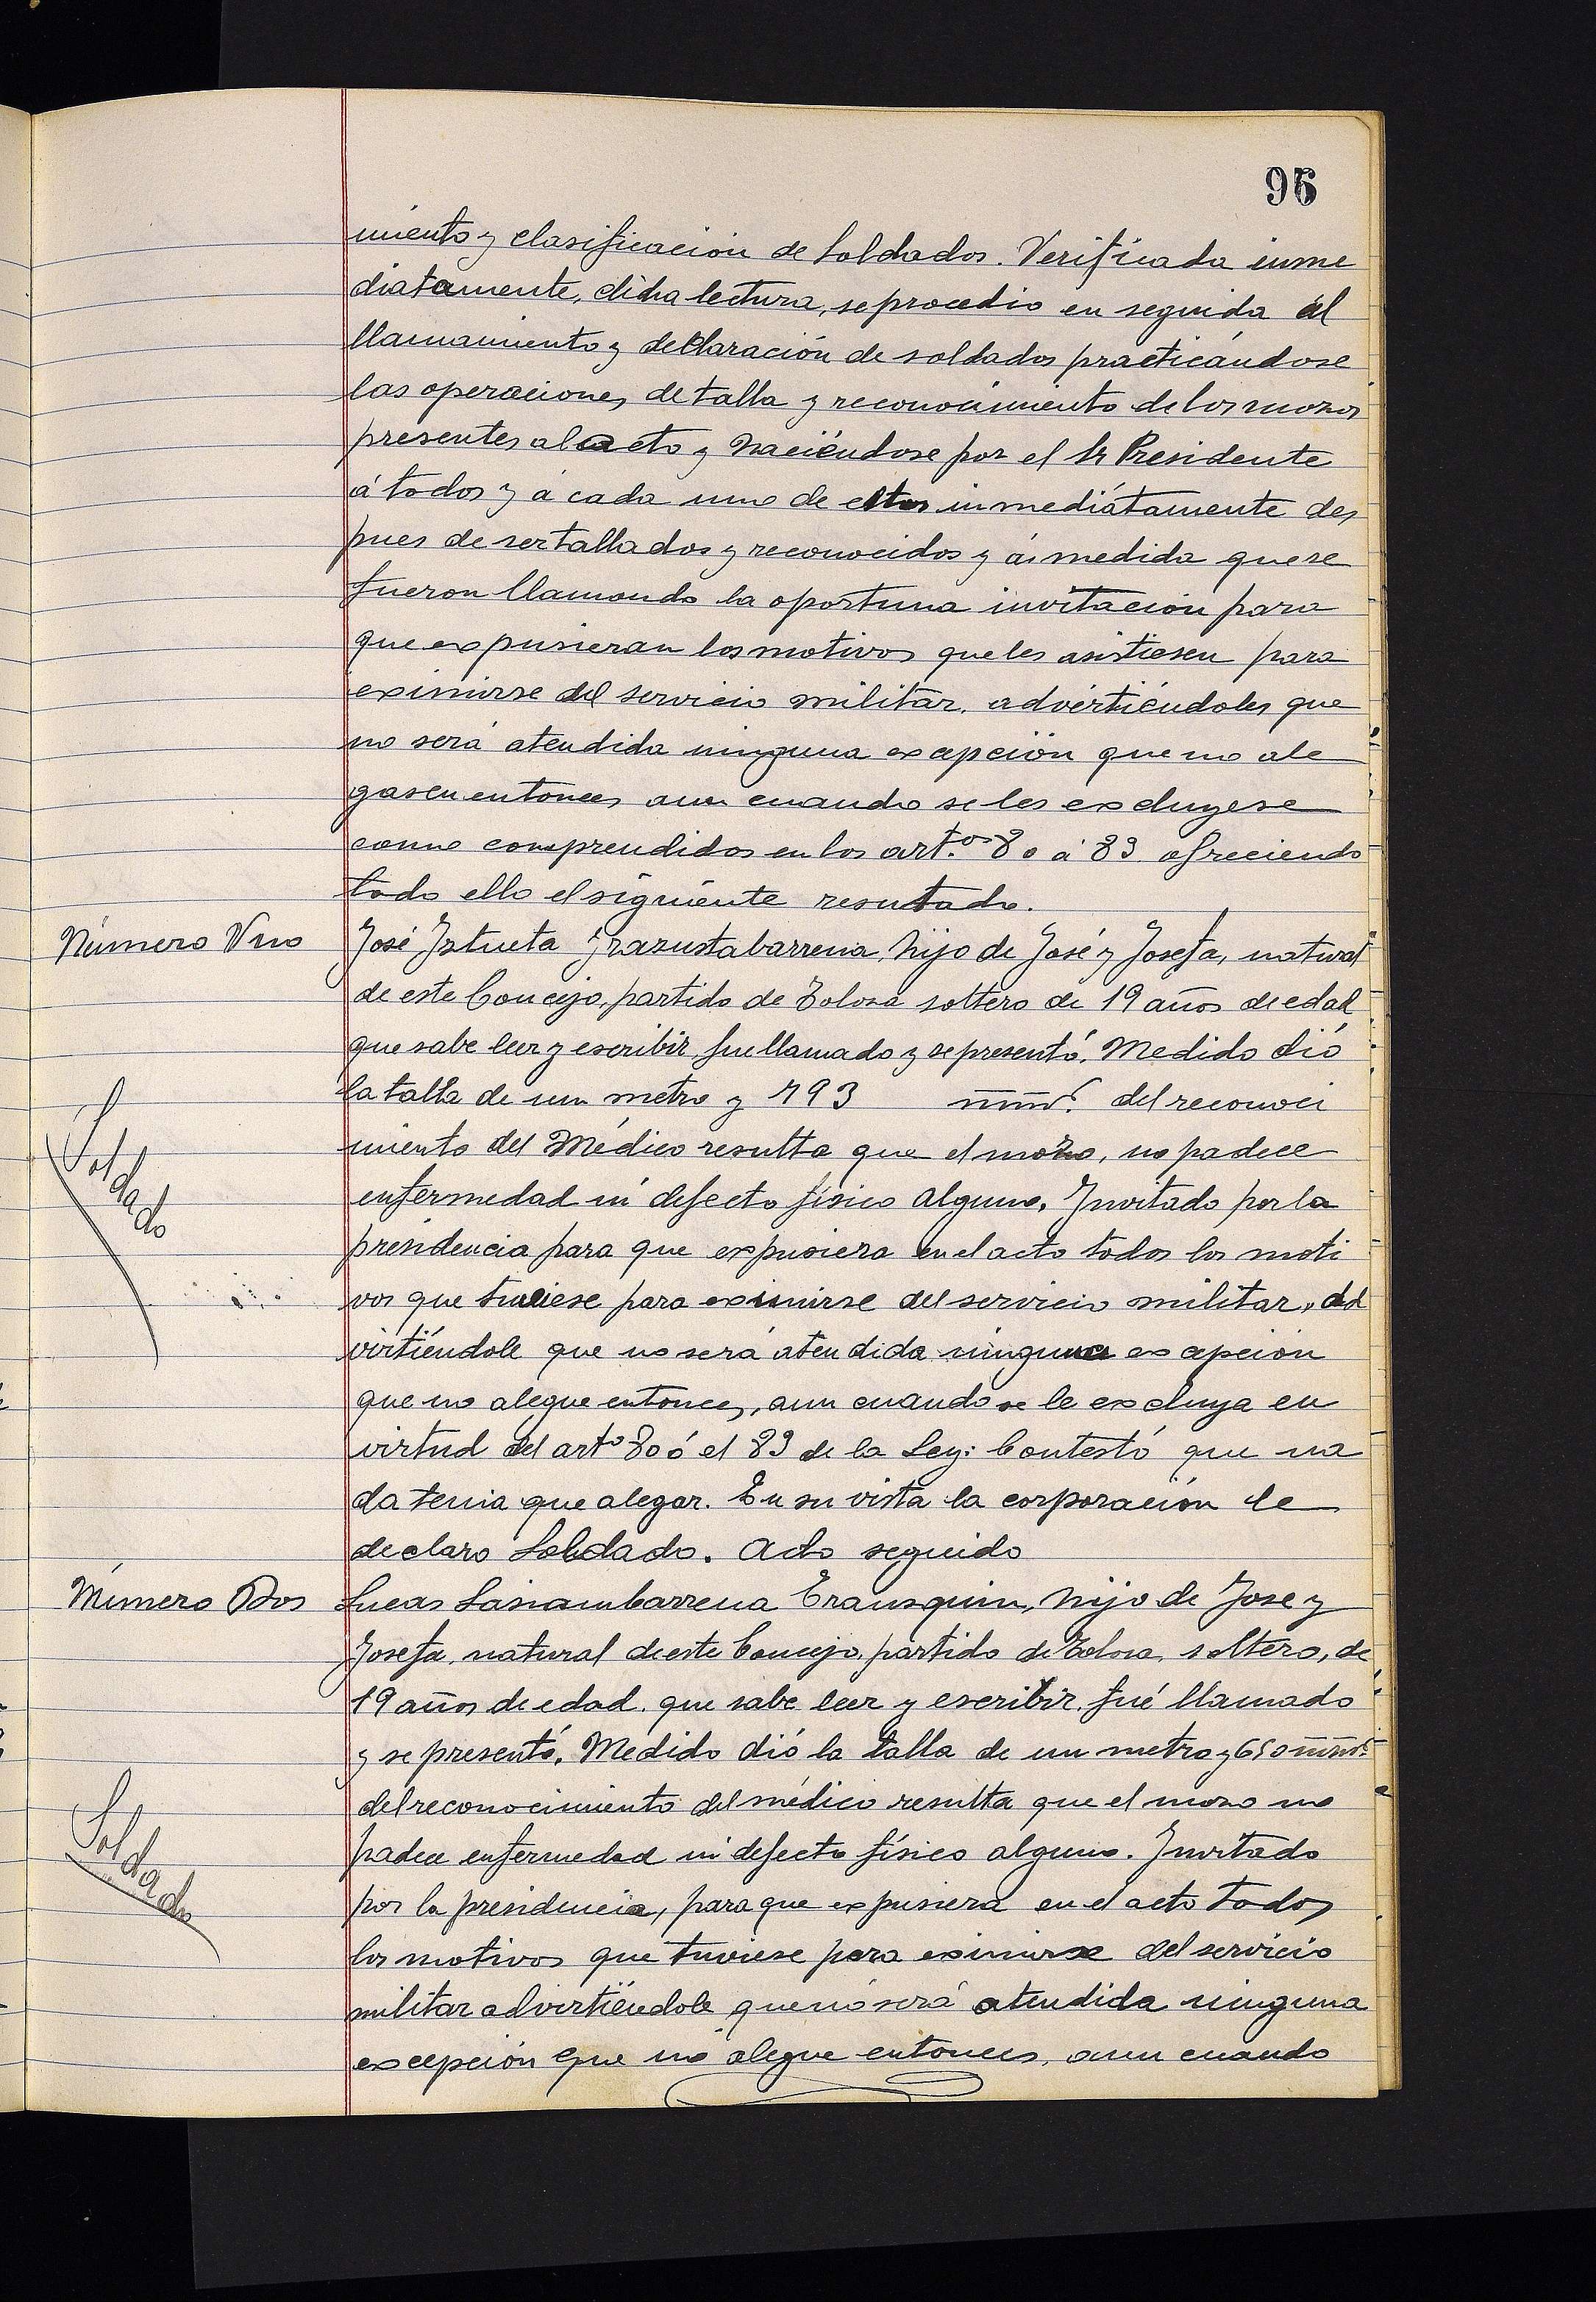 96
miento y clasificación de Soldados. Verificada inme
diatamente, dicha lectura, se procedio en seguida al
llamamiento y declaración de soldados practicándose
las operaciones de talla y reconocimiento de los mozos
presentes al acto y haciéndose por el Sr Presidente
á todos y á cada uno de estos inmediátamente des
pues de ser tallados y reconocidos y á medida que se
fueron llamando la oportuna invitación para
que expusieran los motivos que les asistiesen para
eximirse del servicio militar, advirtiéndoles que
no será atendida ninguna excepción que no ale
gasen entonces aun cuando se les excluyese
como comprendidos en los art.os 80 á 83 ofreciendo
todo ello el siguiente resultado.
Número Uno
José Iztueta Irazustabarrena, hijo de José y Josefa, natural
de este Concejo, partido de Tolosa soltero de 19 años de edad
que sabe leer y escribir, fue llamado y se presentó. Medido dió
la talla de un metro y 793 mm. del reconoci
miento del Médico resulta que el mozo, no padece
enfermedad ni defecto físico alguno. Invitado por la
Soldado
presidencia para que expusiera en el acto todos los moti
vos que tuviese para eximirse del servicio militar, ad
virtiéndole que no será atendida ninguna excepción
que no alegue entonces, aun cuando se le excluya en
virtud del arto 80 ó el 83 de la Ley: Contestó que na
da tenia que alegar. En su vista la corporación le
declaro Soldado. Acto seguido
Número Dos
Lucas Lasnambarrena Erausquin, hijo de Jose y
Josefa, natural de este Concejo, partido de Tolosa, soltero, de
19 años de edad, que sabe leer y escribir, fué llamado
y se presentó. Medido dió la talla de un metro y 650 mm.
del reconocimiento del médico resulta que el mozo no
padece enfermedad ni defecto físico alguno. Invitado
Soldado
por la presidencia, para que expusiera en el acto todos
los motivos que tuviese para eximirse del servicio
militar advirtiéndole que nó será atendida ninguna
excepción que no alegue entonces, aun cuando